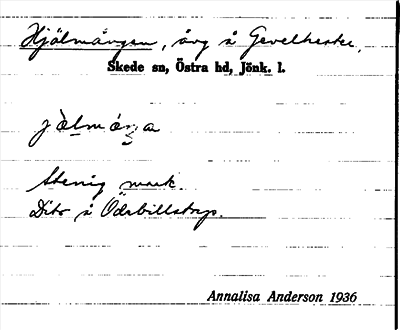 Hjälmängen, äng å Gevelhester,
Skede sn, Östra hd, Jönk. l.
Stenig mark.
Dito å Ödebillstorp.
Annalisa Anderson 1936